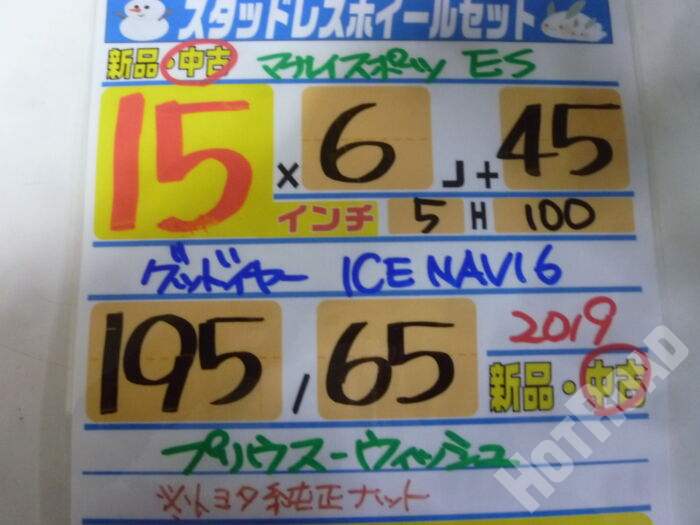 スタッドレスホイールセット
新品・中古 マルイスポーツ ES
15 × 6 J + 45
インチ 5 H 100
グッドイヤー ICE NAVI 6
195 / 65 2019
新品・中古
プリウス-ウィッシュ
※トヨタ純正ナット
HOTROAD